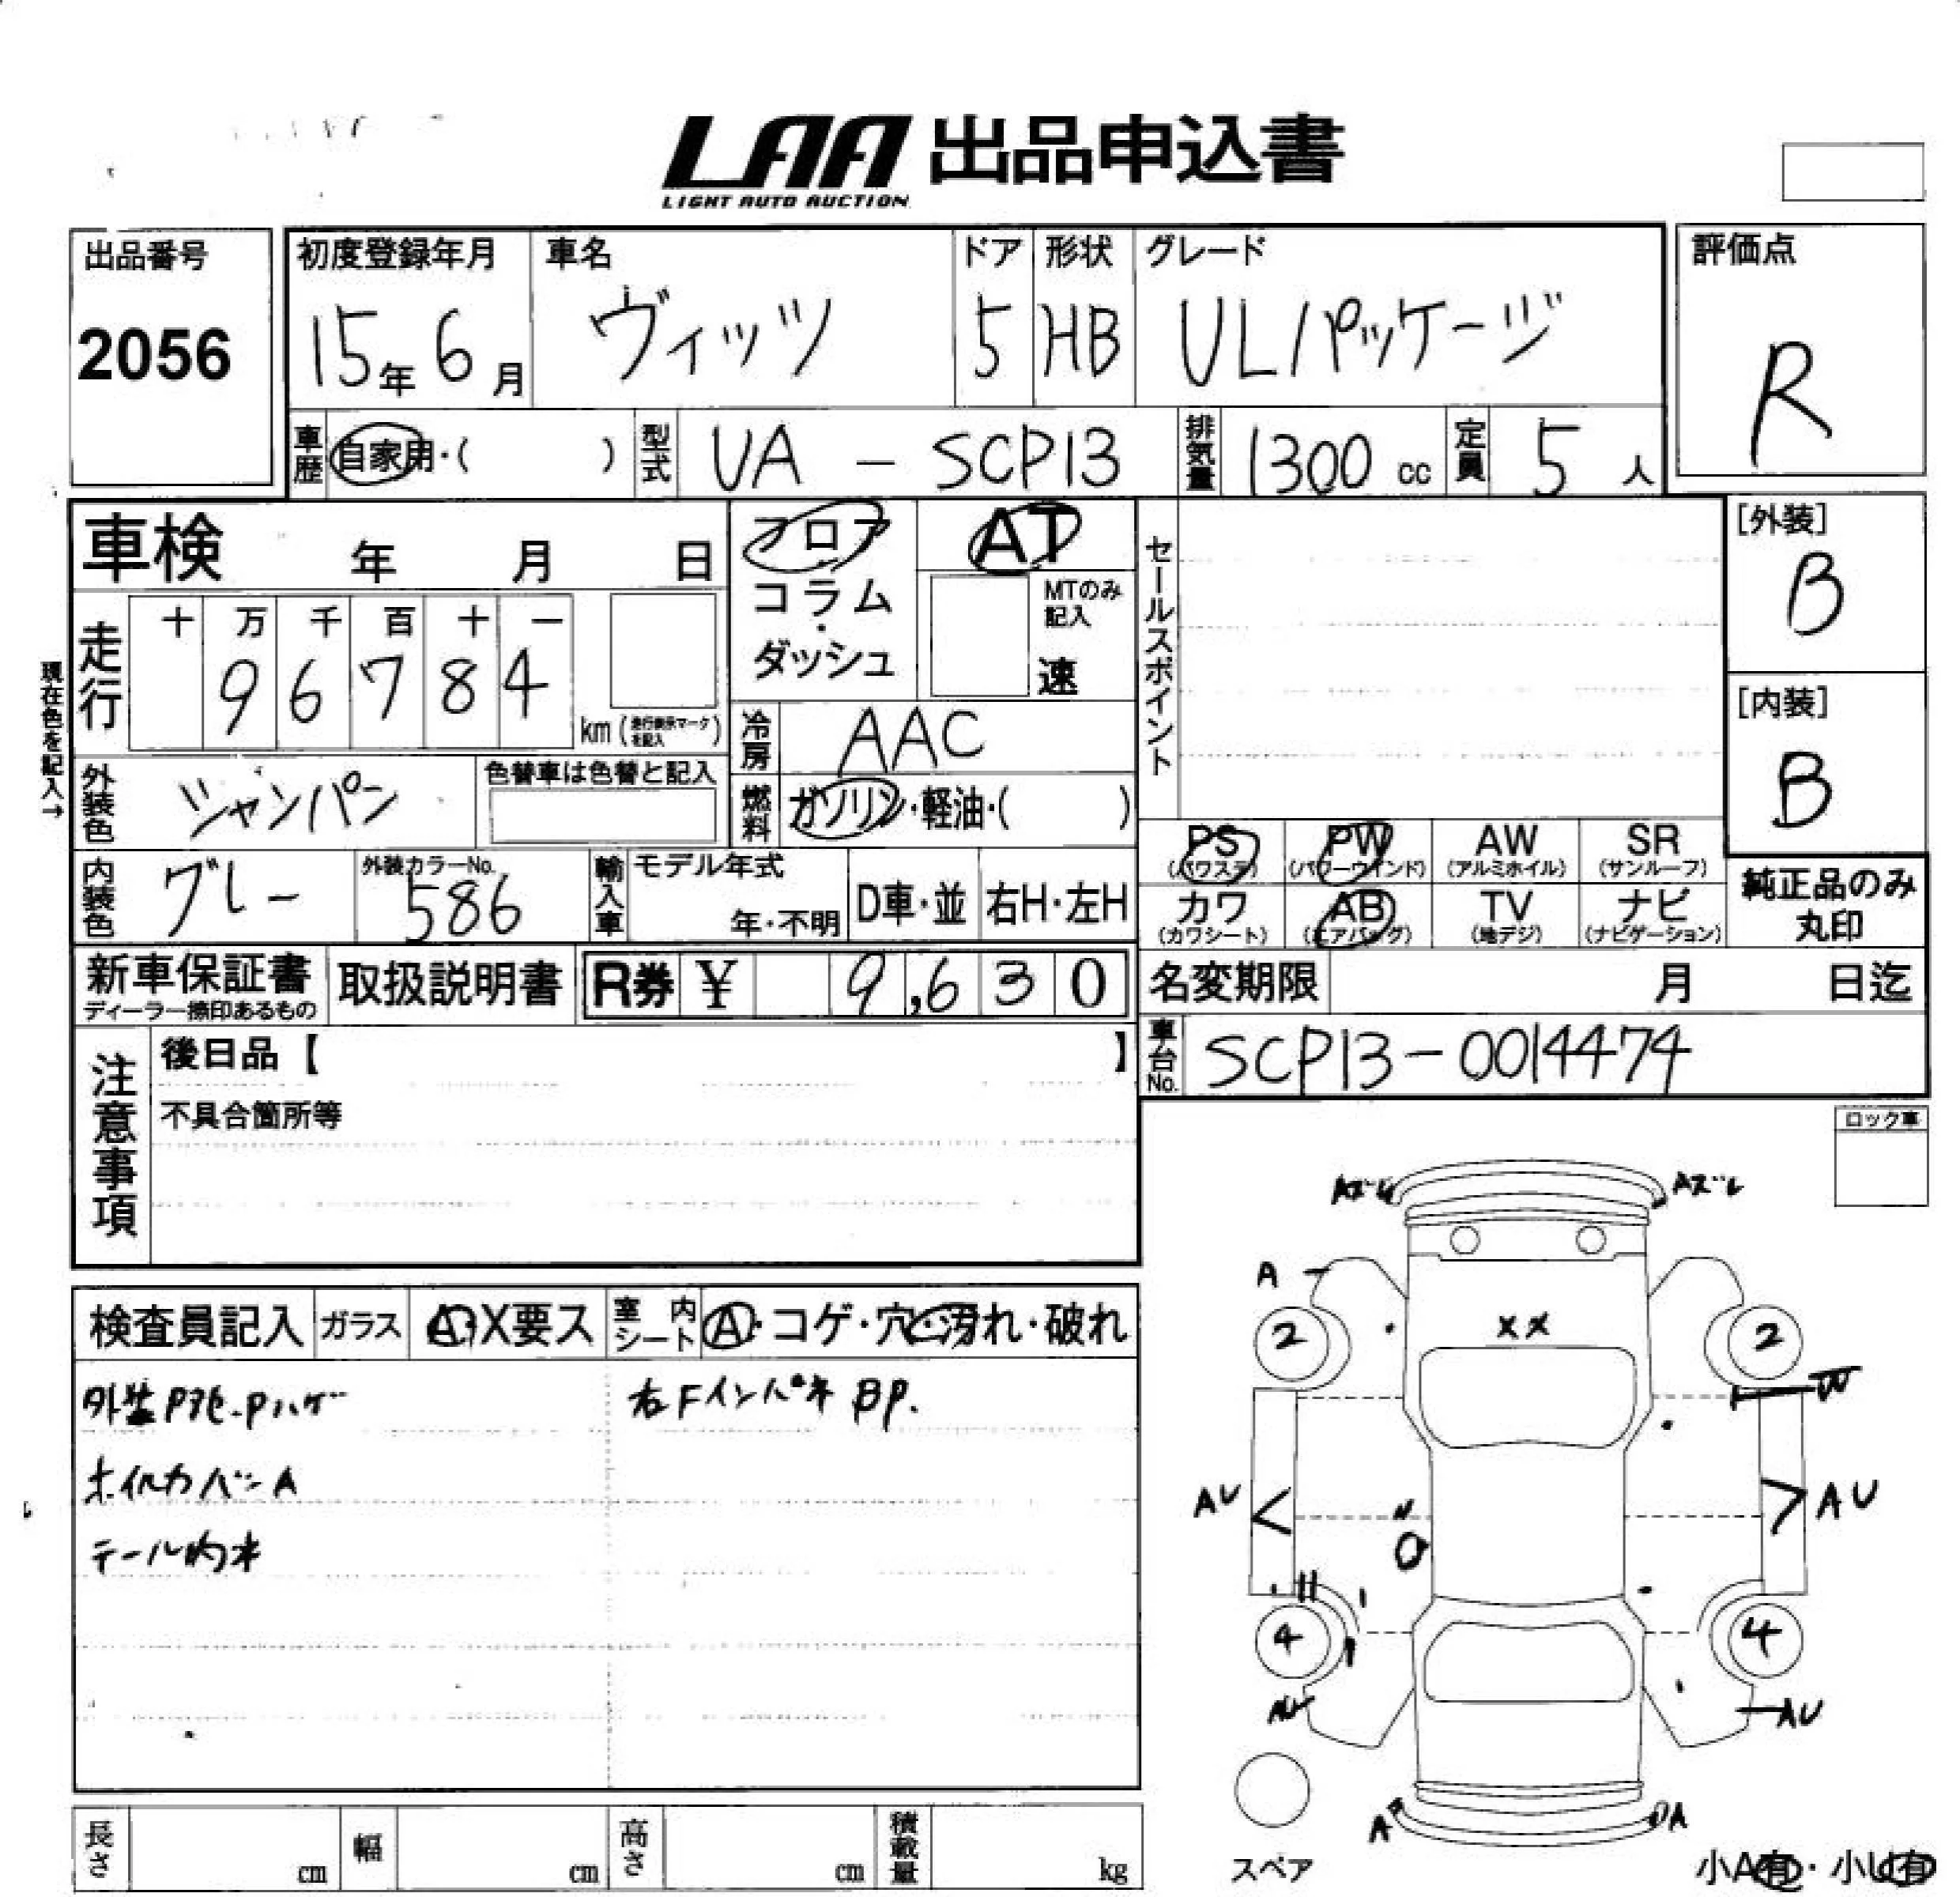 LAA 出品申込書
LIGHT AUTO AUCTION
出品番号 2056
初度登録年月 15年6月
車名 ヴィッツ
ドア 5
形状 HB
グレード ULパッケージ
評価点 R
車歴 自家用・( )
型式 UA - SCP13
排気量 1300 cc
定員 5 人
車検 年 月 日
フロア・コラム・ダッシュ
AT
MTのみ記入
速
セールスポイント
[外装] B
[内装] B
現在色を記入→
走行 十 万 千 百 十 一
9 6 7 8 4
km (走行表示マークを記入)
冷房 AAC
燃料 ガソリン・軽油・( )
外装色 シャンパン
色替車は色替と記入
内装色 グレー
外装カラーNo. 586
輸入車 モデル年式 年・不明
D車・並 右H・左H
PS (パワステ) PW (パワーウインド) AW (アルミホイル) SR (サンルーフ)
カワ (カワシート) AB (エアバッグ) TV (地デジ) ナビ (ナビゲーション)
純正品のみ丸印
新車保証書 ディーラー捺印あるもの
取扱説明書
R券 ¥ 9,630
名変期限 月 日迄
車台No. SCP13-0014474
注意事項
後日品【 】
不具合箇所等
ロック車
検査員記入 ガラス A・X要ス 室内シート A・コゲ・穴・汚れ・破れ
外装 Pハゲ
右Fインパネ BP.
ホイルカバーA
テール内水
Aズレ Aズレ
A
2 XX 2
W
AU AU
4 4
AU AU
A A
スペア
小A有・小U有
長さ cm 幅 cm 高さ cm 積載量 kg